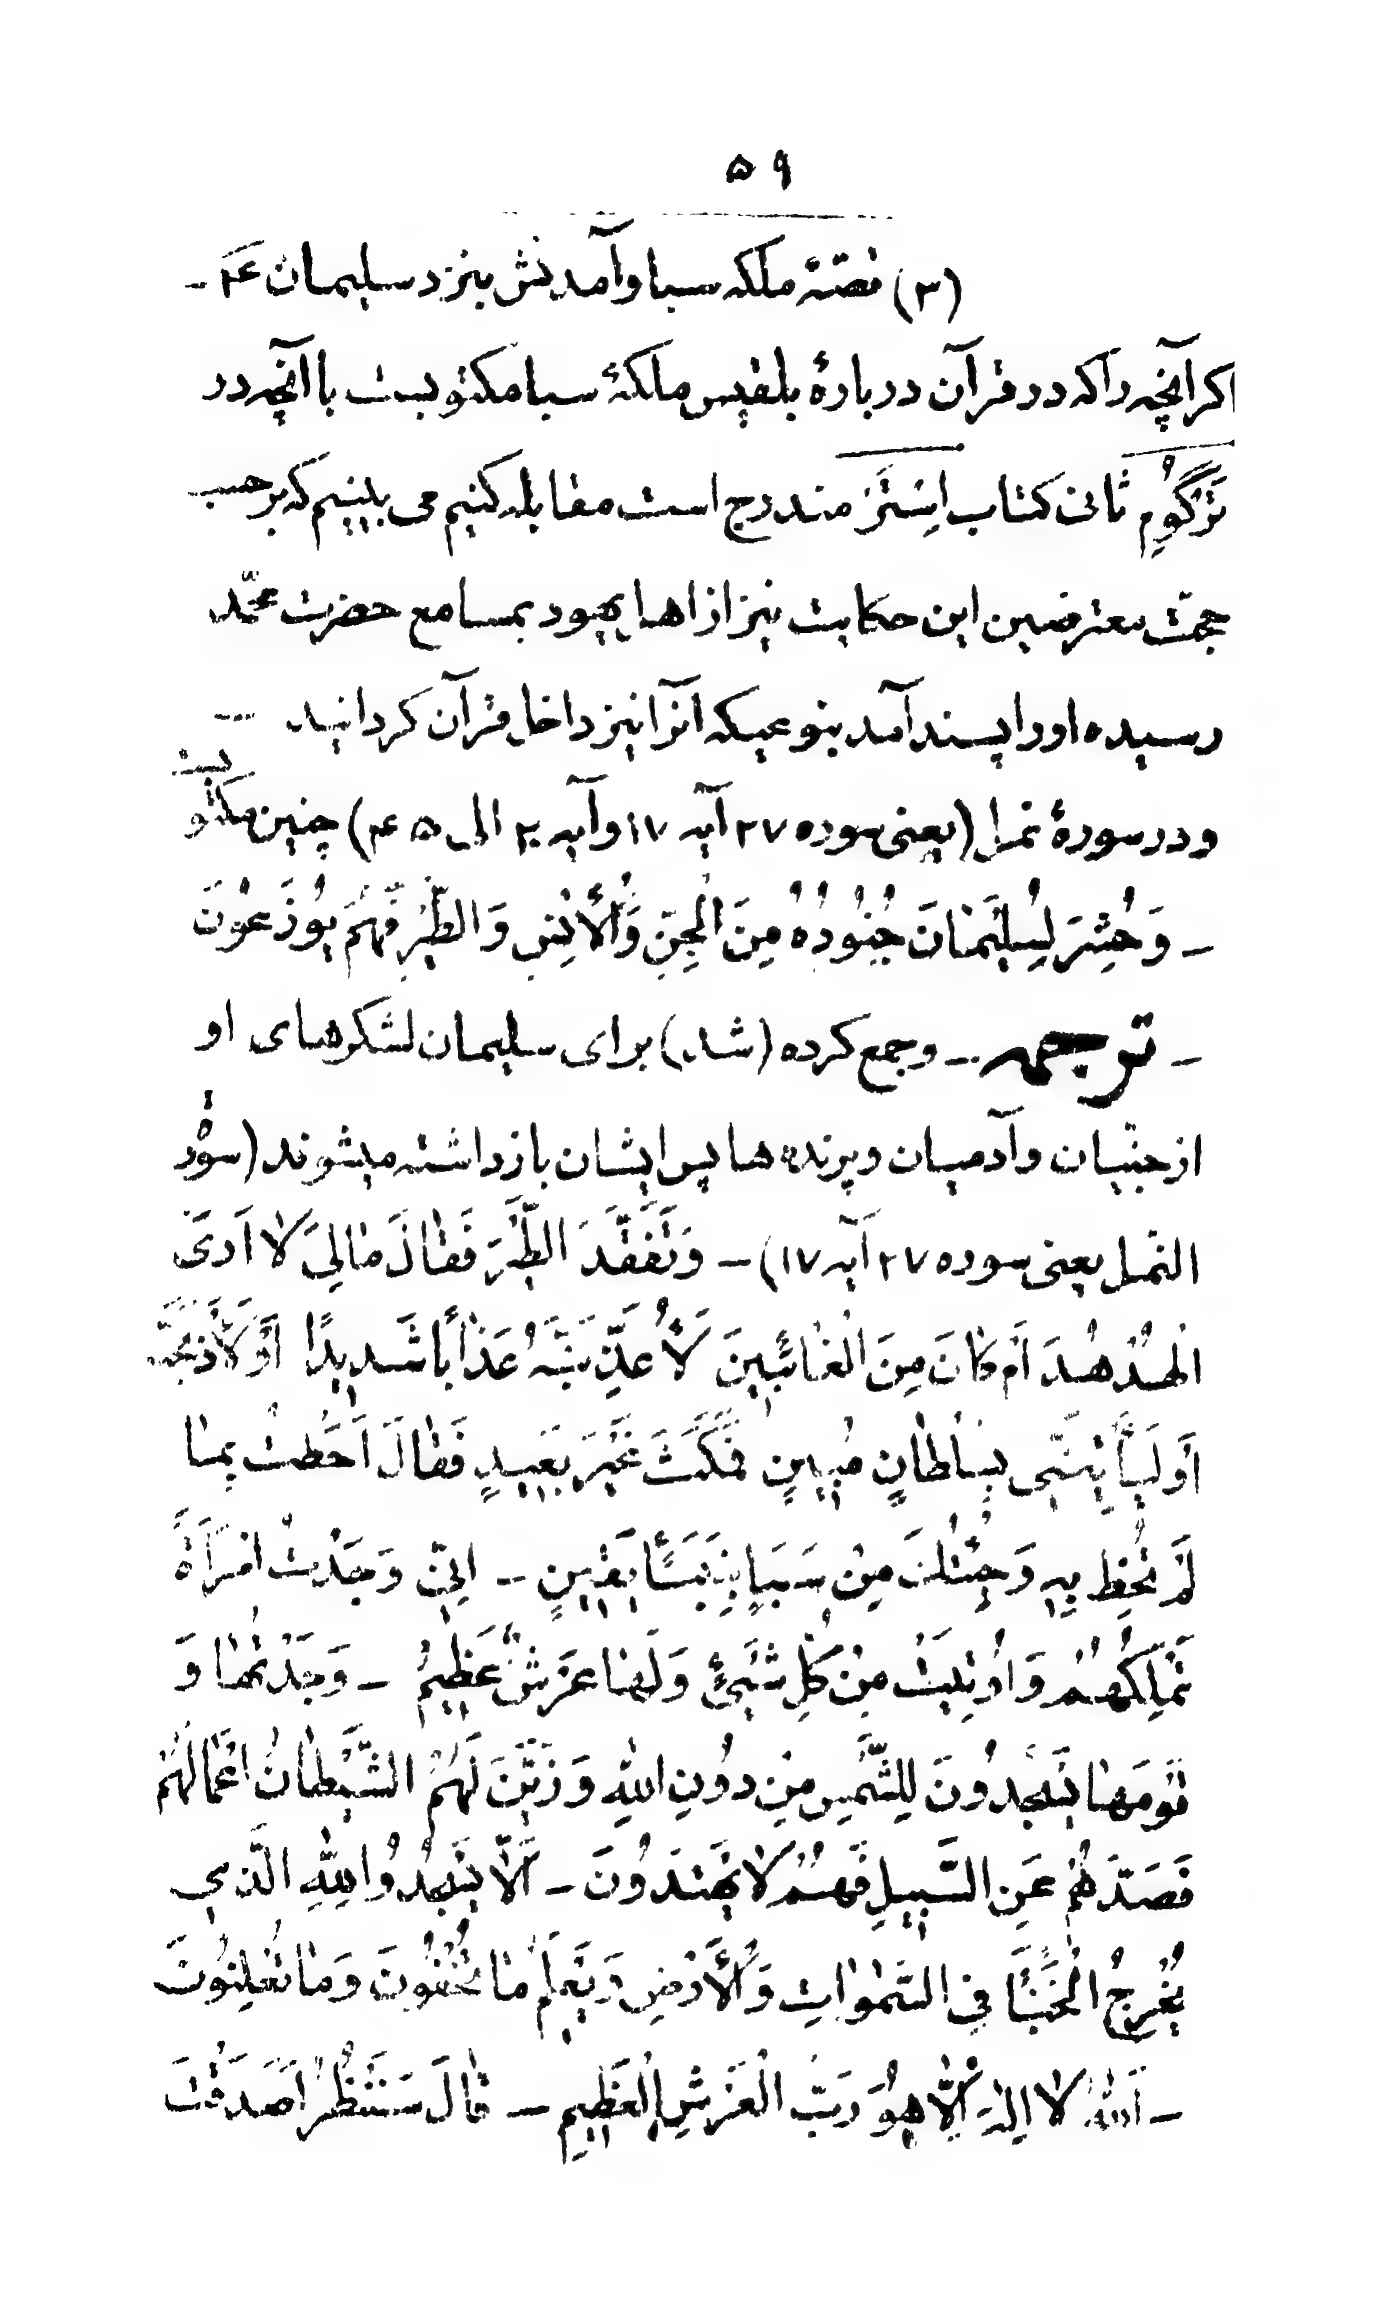 ۵۹
(۳) قصّهٔ ملکه سبا وآمدنش بنزد سلیمان ع۴ -
اکر آنچه را که در قرآن دربارهٔ بلقیس ملکهٔ سبا مکتوبست با آنچه در
تَرْگُومِ ثانی کتاب اِسْتَرْ مندرج است مقابله کنیم می بینیم که بر حسب
حجت معترضین این حکایت نیز از اهل یهود بمسامع حضرت محمّد
رسیده او را پسند آمد بنوعیکه آنرا نیز داخل قرآن کردانید --
و در سورهٔ نمل (یعنی سوره ۲۷ آیه ۱۷ وآیه ۲۰ الی ۴۵) چنین مکتوبست
- وَحُشِرَ لِسُلَیْمٰانَ جُنُودُهُ مِنَ الْجِنِّ وَالْأُنِسِ وَالطَّیْرِ فَهُمْ یُوزَعُونَ
- ترجمه - وجمع کرده (شد) برای سلیمان لشکرهای او
از جنّیان وآدمیان وپرنده ها پس ایشان بازداشته میشوند (سورهٔ
النّمل یعنی سوره ۲۷ آیه ۱۷) - وَتَفَقَّدَ الطَّیْرَ فَقٰالَ مٰالِیَ لاٰ اَرَی
الْهُدْهُدَ أَمْ کٰانَ مِنَ الْغٰائِبِینَ لَأُعَذِّبَنَّهُ عَذٰاباً شَدِیدًا أَوْ لَأَذْبَحَنَّهُ
أَوْ لَیَأْتِیَنِّی بِسُلْطٰانٍ مُبِینٍ فَمَکَثَ غَیْرَ بَعِیدٍ فَقٰالَ أَحَطْتُ بِمٰا
لَمْ تُحِطْ بِهِ وَجِئْتُکَ مِنْ سَبَإٍ بِنَبَإٍ یَقِینٍ - اِنِّی وَجَدْتُ امْرَأَةً
تَمْلِکُهُمْ وَاُوتِیَتْ مِنْ کُلِّ شَیْئٍ وَلَهٰا عَرْشٌ عَظِیمٌ - وَجَدْتُهٰا وَ
قَوْمَهٰا یَسْجُدُونَ لِلشَّمْسِ مِنْ دُونِ اللهِ وَزَیَّنَ لَهُمُ الشَّیْطٰانُ اَعْمٰالَهُمْ
فَصَدَّهُمْ عَنِ السَّبِیلِ فَهُمْ لاٰ یَهْتَدُونَ - أَلاّٰ یَسْجُدُوا لِلّٰهِ الَّذِی
یُخْرِجُ الْخَبْأَ فِی السَّمٰوٰاتِ وَالْأَرْضِ وَیَعْلَمُ مٰا تُخْفُونَ وَمٰا تُعْلِنُونَ
- اَللهُ لاٰ اِلٰهَ اِلاّٰ هُوَ رَبُّ الْعَرْشِ الْعَظِیمِ - قٰالَ سَنَنْظُرُ اَصَدَقْتَ